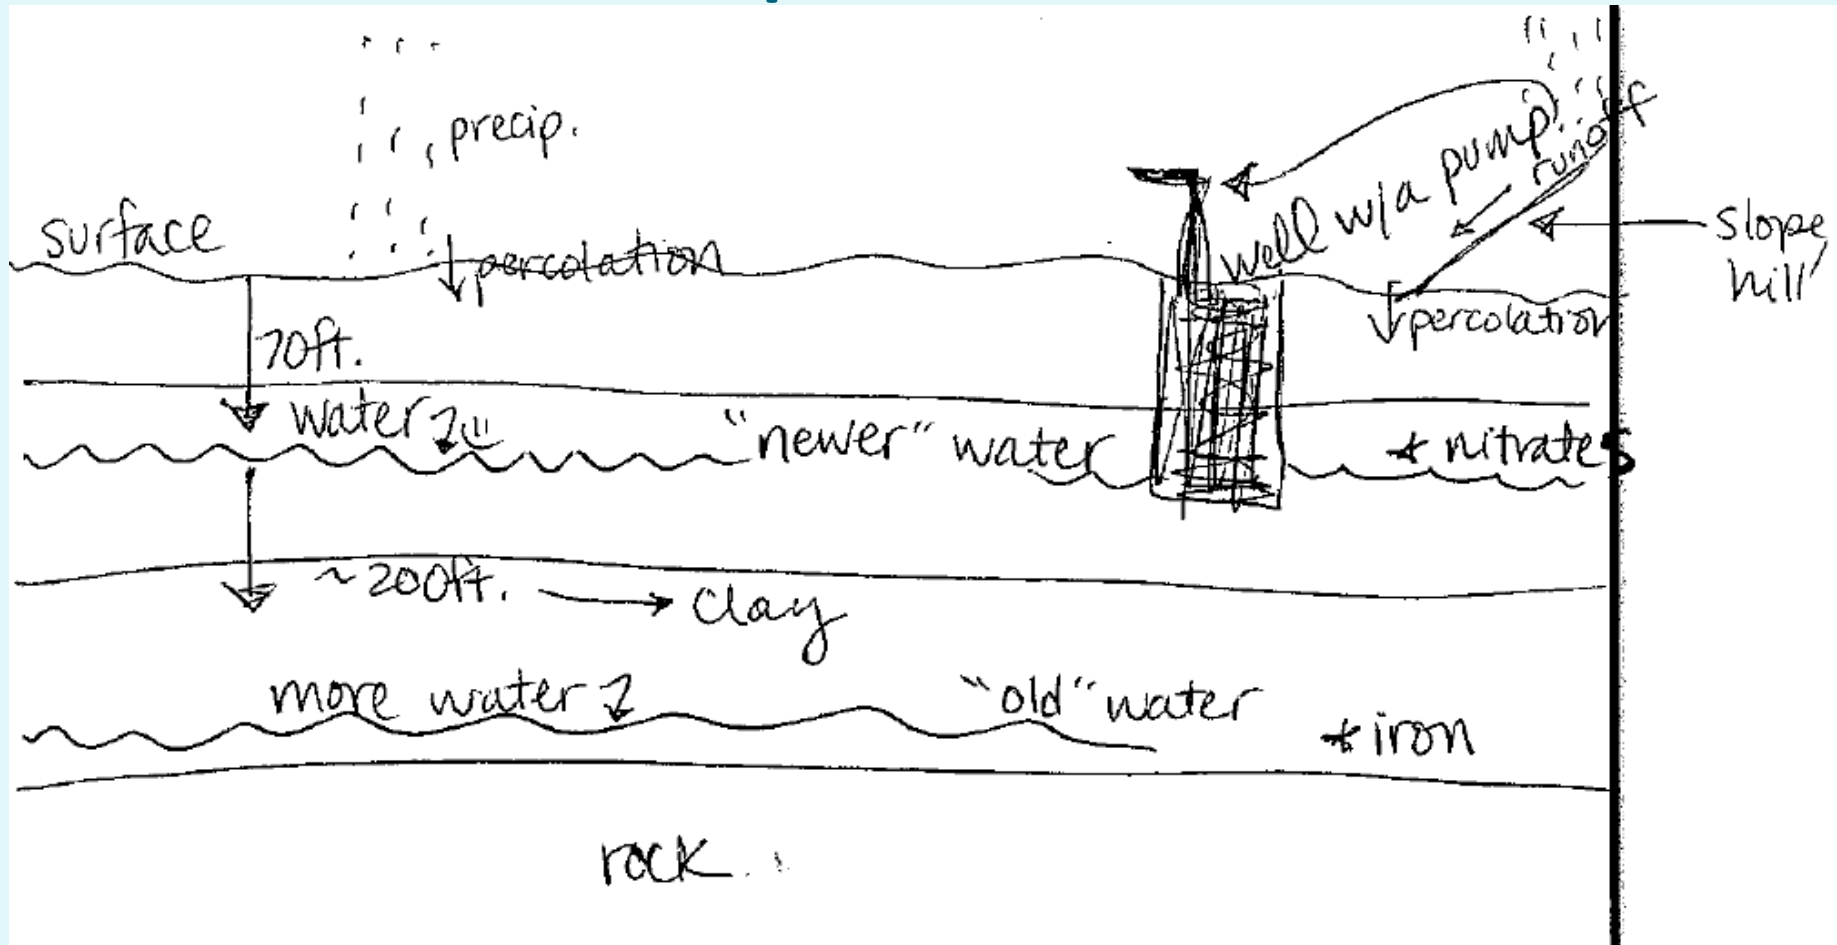 precip.
surface
percolation
well w/a pump
runoff
slope,
hill
70ft.
percolation
water
"newer" water
* nitrates
~200ft. → clay
more water
"old" water
* iron
rock.